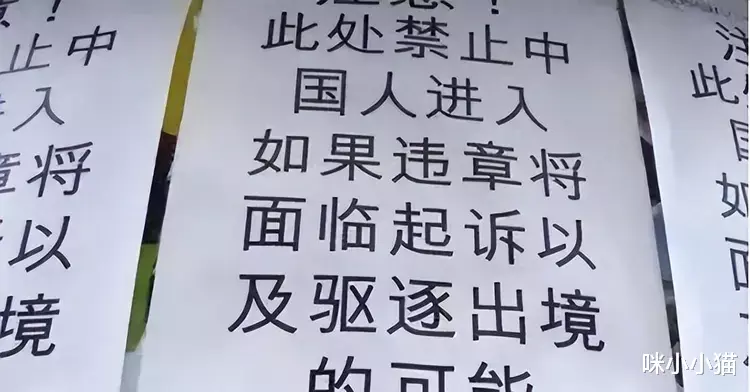 意！
止中
入
章将
以
境
注意！
此处禁止中
国人进入
如果违章将
面临起诉以
及驱逐出境
的可能
注
此
国
如
面
咪小小猫